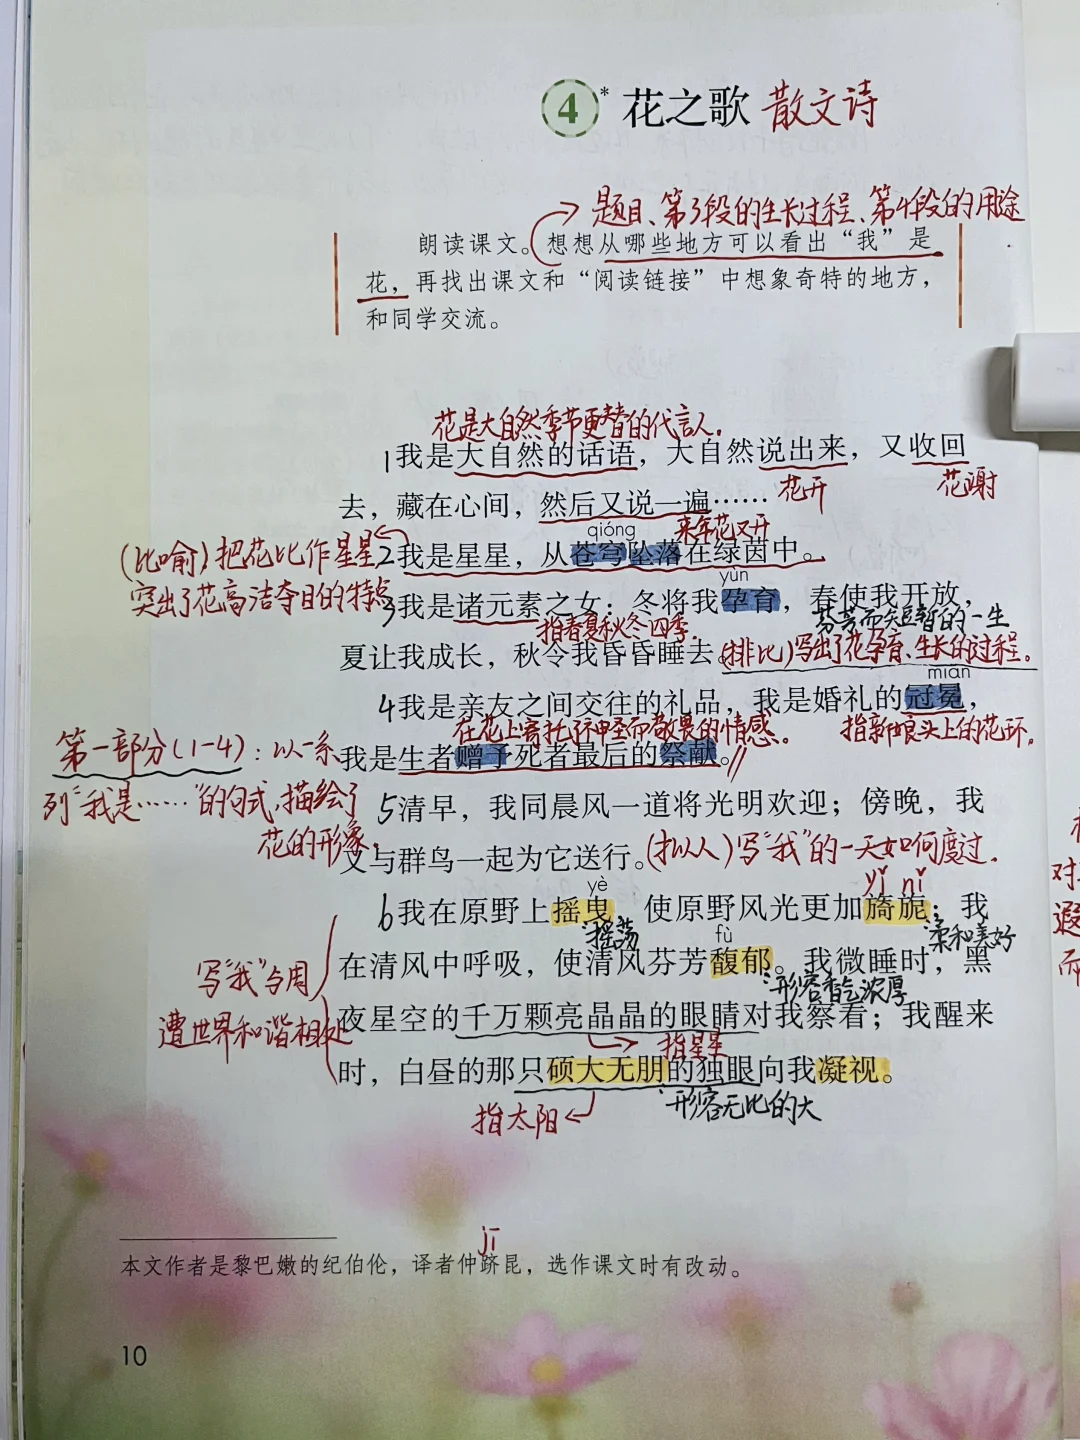 4* 花之歌 散文诗
题目、第3段的生长过程、第4段的用途
朗读课文。想想从哪些地方可以看出“我”是
花，再找出课文和“阅读链接”中想象奇特的地方，
和同学交流。
花是大自然季节更替的代言人。
1我是大自然的话语，大自然说出来，又收回
花开
花谢
去，藏在心间，然后又说一遍……
来年花又开
qióng
(比喻)把花比作星星
突出了花高洁夺目的特点
2我是星星，从苍穹坠落在绿茵中。
yùn
3我是诸元素之女：冬将我孕育，春使我开放，
指春夏秋冬四季.
芬芳而短暂的一生
夏让我成长，秋令我昏昏睡去。
(排比)写出了花孕育、生长的过程。
miǎn
4我是亲友之间交往的礼品，我是婚礼的冠冕，
在花上寄托了神圣而敬畏的情感。
指新娘头上的花环.
我是生者赠予死者最后的祭献。//
第一部分(1-4)：以一系
列“我是……”的句式，描绘了
花的形像.
5清早，我同晨风一道将光明欢迎；傍晚，我
又与群鸟一起为它送行。
(拟人)写“我”的一天如何度过.
yè
yǐ nǐ
6我在原野上摇曳，使原野风光更加旖旎；我
:摇荡
:柔和美好
fù
在清风中呼吸，使清风芬芳馥郁。我微睡时，黑
:形容香气浓厚
写“我”与周
遭世界和谐相处
夜星空的千万颗亮晶晶的眼睛对我察看；我醒来
指星星
时，白昼的那只硕大无朋的独眼向我凝视。
指太阳
:形容无比的大
jī
本文作者是黎巴嫩的纪伯伦，译者仲跻昆，选作课文时有改动。
10
对
遐
而